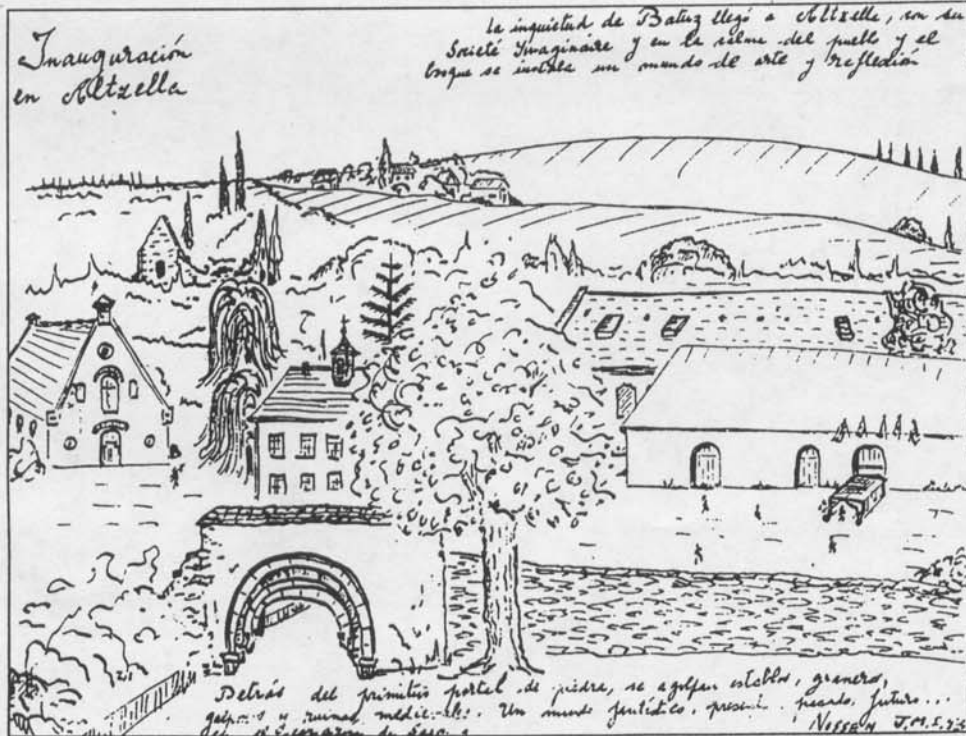 Inauguración
en Altzella
la inquietud de Batuz llegó a Altzella, con su
Societé Imaginaire y en la calma del pueblo y el
bosque se instala un mundo de arte y reflexión
Detrás del primitivo portal de piedra, se agolpan establos, graneros,
galpones y ruinas medievales. Un mundo fantástico, presente, pasado, futuro...
en el corazón de
Nossen J.M.S.